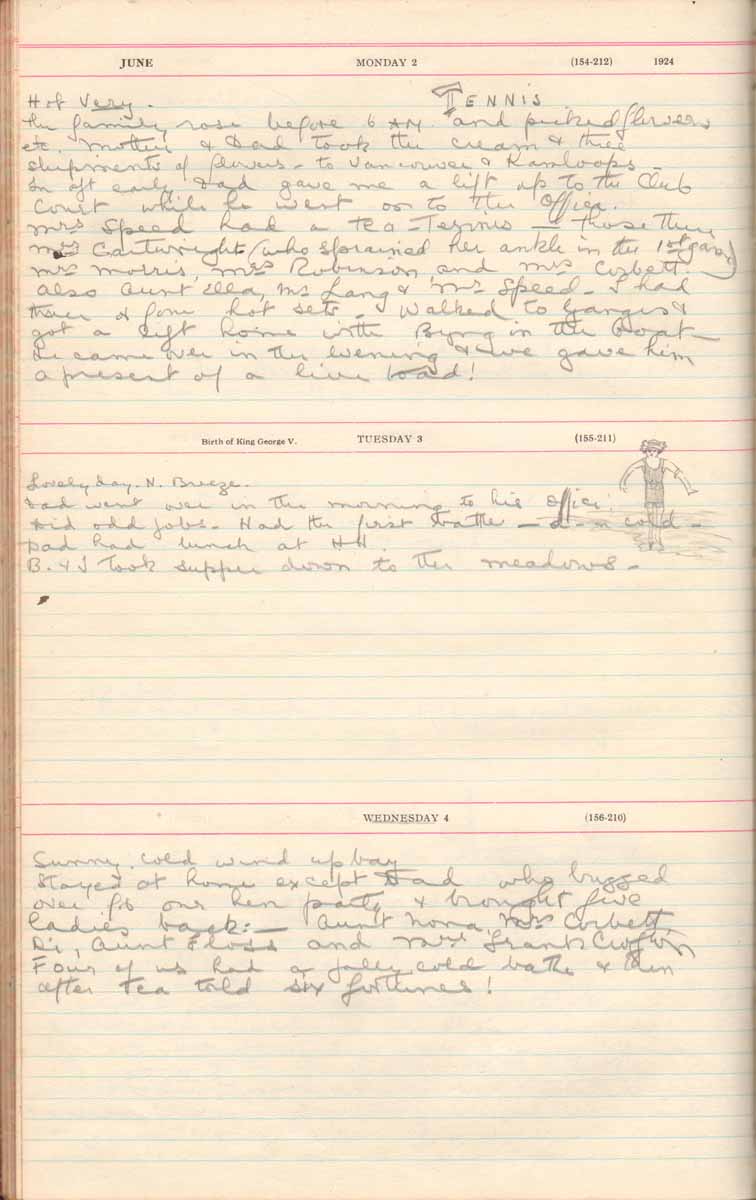 JUNE MONDAY 2 (154-212) 1924
Hot Very. TENNIS
The family rose before 6 AM. and picked flowers
etc. Mother & Dad took the cream & three
shipments of flowers - to Vancouver & Kamloops -
In aft early Dad gave me a lift up to the Club
Court while he went on to the Office.
Mrs Speed had a tea-Tennis - those there
Mrs Cartwright (who sprained her ankle in the 1st game)
Mrs Morris, Mrs Robinson and Mrs Corbett.
Also Aunt Ella, Ms Lang & Mr Speed - I had
three & four hot sets - Walked to Ganges &
got a lift home with Byng in the boat -
He came over in the evening & we gave him
a present of a live toad!
Birth of King George V. TUESDAY 3 (155-211)
Lovely day. N. Breeze.
Dad went over in the morning to his office.
Did odd jobs - Had the first bathe - d-n cold -
Dad had lunch at HH.
B. & I took supper down to the meadows -
WEDNESDAY 4 (156-210)
Sunny. Cold wind up bay
Stayed at home except Dad who buzzed
over for our hen party & brought five
ladies back: - Aunt Nona, Mrs Corbett,
Di, Aunt Floss and Mrs Frank Crofton
Four of us had a jolly cold bathe & then
after tea told six fortunes!